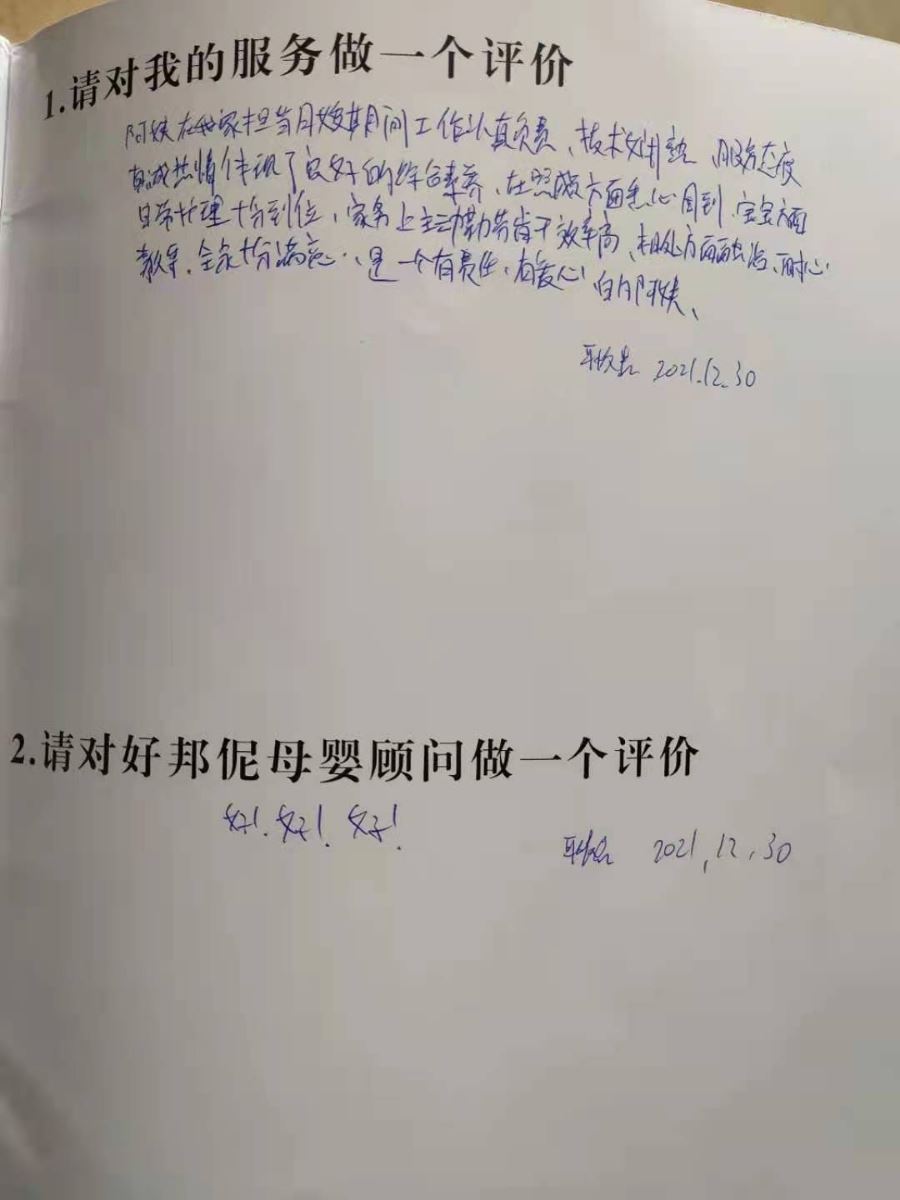 1.请对我的服务做一个评价
阿姨在我家担当月嫂期间工作认真负责、技术娴熟、服务态度
真诚热情体现了良好的综合素养、在照顾方面悉心周到、宝宝方面
日常护理十分到位、家务上主动勤劳肯干效率高、相处方面融洽、耐心
教导、全家十分满意、是一个有责任、有爱心的阿姨、
2021.12.30
2.请对好邦伲母婴顾问做一个评价
好!好!好!
2021.12.30